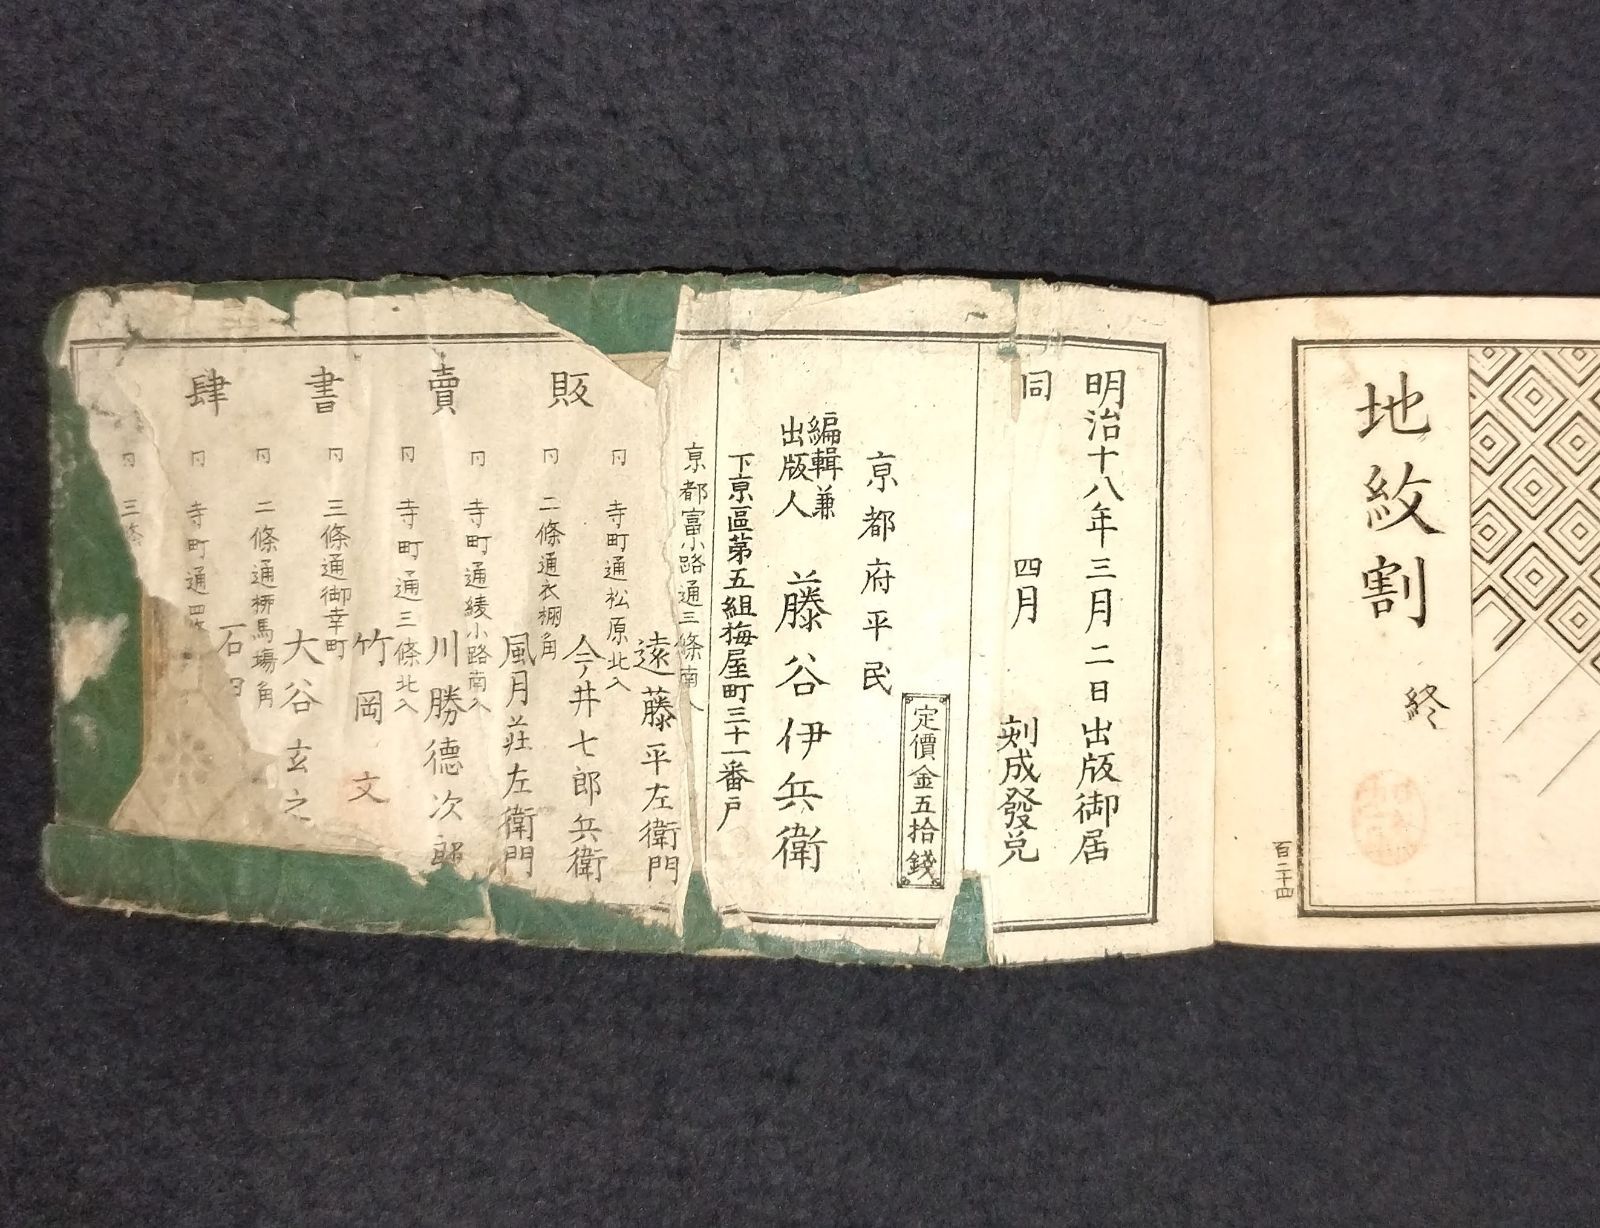 地紋割
終
百二十四
明治十八年三月二日出版御届
同 四月 刻成發兌
定價金五拾錢
京都府平民
編輯兼
出版人 藤谷伊兵衛
下京區第五組梅屋町三十一番戸
販賣書肆
京都富小路通三條南入
遠藤平左衛門
同 寺町通松原北入
今井七郎兵衛
同 二條通衣棚角
風月莊左衛門
同 寺町通綾小路南入
川勝德次郎
同 寺町通三條北入
竹岡文
同 三條通御幸町
大谷玄之
同 二條通柳馬塲角
石田
同 寺町通四條
同 三條